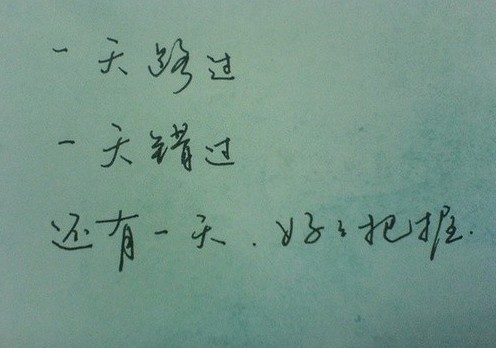 一天路过
一天错过
还有一天.好々把握.